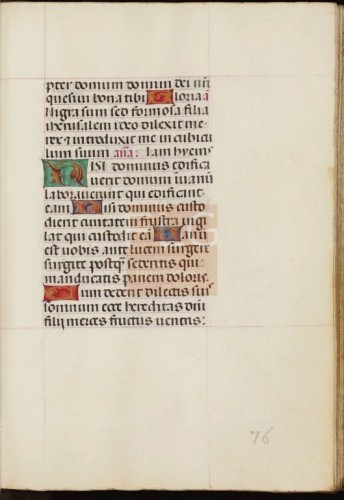 pter domum domini dei nr̄i
quesiui bona tibi Gloria a
Nigra sum sed formosa filia
iherusalem ideo dilexit me
rex et introduxit me in cubicu
lum suum añā: Iam hyems
NISI dominus edifica
uerit domum in uanū
laborauerunt qui edificant
eam Nisi dominus custo
dierit ciuitatem frustra uigi
lat qui custodit eā Uanū
est uobis ante lucem surgere
surgite postq̄ sederitis qui
manducatis panem doloris.
Cum dederit dilectis suis
somnum ecce hereditas dn̄i
filij merces fructus uentris:
76